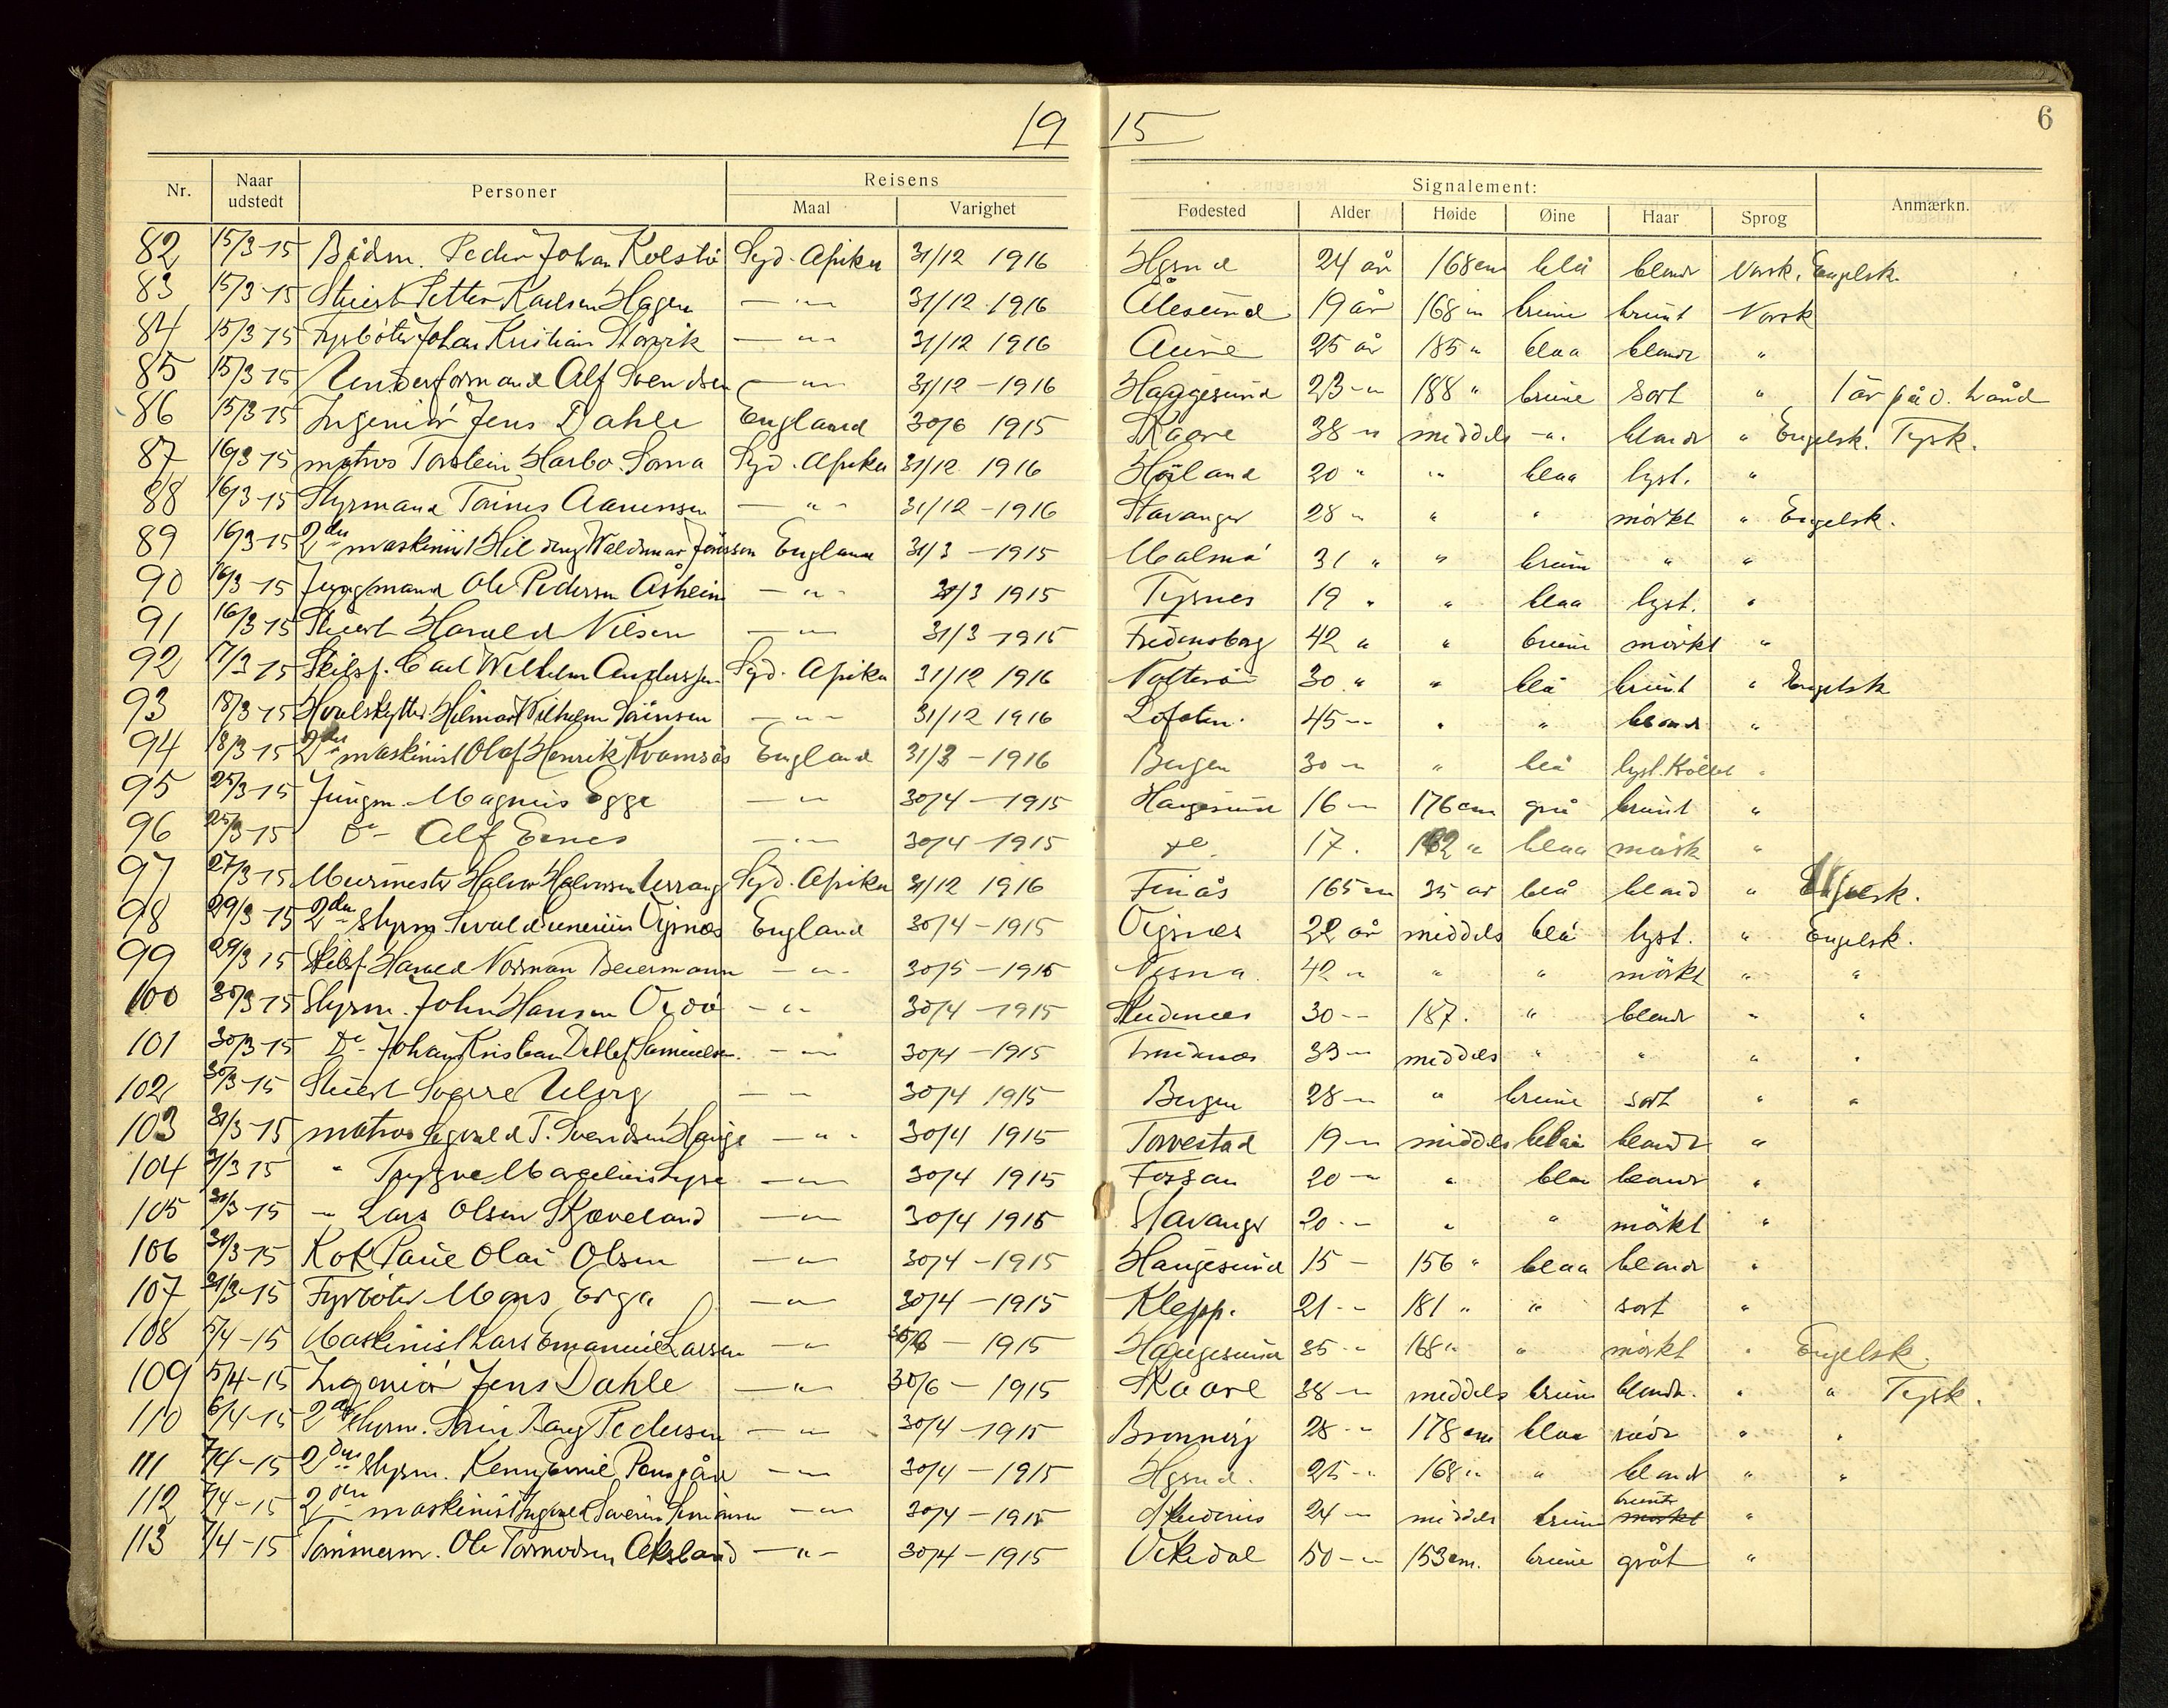 19 15
6
Nr. Naar udstedt Personer Reisens Maal Varighet Signalement: Fødested Alder Høide Øine Haar Sprog Anmærkn.
82 15/3-15 Bådsm. Peder Johan Kolstø Syd-Afrika 31/12 1916 Hgsund 24 år 168 cm blå blondt Norsk. Engelsk.
83 15/3-15 Stuert Petter Karlsen Hagen — " — 31/12 1916 Ålesund 19 år 168 " brune brunt Norsk
84 15/3 15 Fyrbøter Johan Kristian Storvik — " — 31/12 1916 Aune 25 år 185 " blaa blondt "
85 15/3 15 Underformand Alf Svendsen — " — 31/12 - 1916 Haugesund 23 - " 188 " brune sort " 1 ar på v. hånd
86 15/3-15 Ingeniør Jens Dahle England 30/6 1915 Skaare 38 - " middels - " - blondt " Engelsk. Tysk.
87 16/3 15 matros Torstein Harbo Soma Syd-Afrika 31/12 1916 Høiland 20 " " blaa lyst. "
88 16/3-15 Styrmand Aanensen — " — 31/12 - 1916 Stavanger 28 - " " " mørkt " Engelsk.
89 16/3-15 2den maskinist Hilding Waldemar Jönsson England 31/3 - 1915 Malmø 31 " " brune " "
90 16/3-15 Jungmand Ole Pedersen Åsheim — " — 31/3 1915 Tysnes 19 " " blaa lyst. "
91 16/3 15 Stuert Harald Nilsen — " — 31/3 - 1915 Fredensborg 42 " " brune mørkt "
92 17/3 15 Skibsf. Carl Wilhelm Anderssen Syd-Afrika 31/12 1916 Nøtterø 30 " " blå brunt " Engelsk
93 18/3-15 Hvalskytter Hilmar Wilhelm Sørensen — " — 31/12 1916 Lofoten. 45 - " " " blondt "
94 18/3-15 2den maskinist Olaf Henrik Kvamsøs England 31/3 - 1916 Bergen 30 - " " blå lyst. Krøllet "
95 25/3-15 Jungm. Magnus Egge — " — 30/4 - 1915 Haugesund 16 - " 176 cm grå brunt "
96 25/3-15 Do - Alf Eenes — " — 30/4 - 1915 17. 182 " blaa mørk "
97 27/3-15 Murmester Halvor Halvorsen Syd-Afrika 31/12 1916 Finås 165 cm 35 år blå blond " Engelsk.
98 29/3-15 2den styrm. Sevald Vignes England 30/4 - 1915 Vigsnes 22 år middels blå lyst. " Engelsk.
99 29/3 15 Skibsf. Harald Norman Beiermann — " — 30/5 - 1915 42 - " " " mørkt " "
100 30/3 15 Styrm. John Hansen — " — 30/4 - 1915 Skudenes 30 - - 187. " blondt " "
101 30/3-15 Do - Johan Kristian Detlef Samuelsen. — " — 30/4 - 1915 33 - " middels " " " "
102 30/3-15 Stuert Sverre — " — 30/4 1915 Bergen 28 - " " brune sort " "
103 31/3-15 matros Sigvald T. Svendsen Hauge — " — 30/4 1915 Torvestad 19 - " middels blaa blondt "
104 31/3 15 " Trygve Marcelius Lyse — " — 30/4 1915 Fossan 20 - " " blaa blondt "
105 31/3-15 - " Lars Olsen Skjæveland — " — 30/4 1915 Stavanger 20 - - " " mørkt "
106 31/3-15 Kok Paul Olai Olsen — " — 30/4 - 1915 Haugesund 15 - 156 " blaa blondt "
107 31/3-15 Fyrbøter Mons Erga — " — 30/4 - 1915 Klepp. 21 - - 181 " " sort "
108 5/4-15 Maskinist Lars Emanuel Larsen — " — 30/6 - 1915 Haugesund 35 - " 168 " " mørkt " Engelsk.
109 5/4-15 Ingeniør Jens Dahle — " — 30/6 - 1915 Skaare 38 - " middels brune blondt. " " Tysk.
110 6/4-15 2den styrm. Bang Pedersen — " — 30/4 - 1915 28 - " 178 cm blaa rødt " "
111 7/4-15 2den styrm. — " — 30/4 - 1915 Hgsund. 25 - " 168 " " blondt " "
112 7/4-15 2den maskinist Ingvald Severin — " — 30/4 - 1915 24 - " middels brune brunt mørkt "
113 7/4-15 Tømmerm. Ole Tormodsen Aksland — " — 30/4 - 1915 Vikedal 50 - " 153 cm. brune gråt "